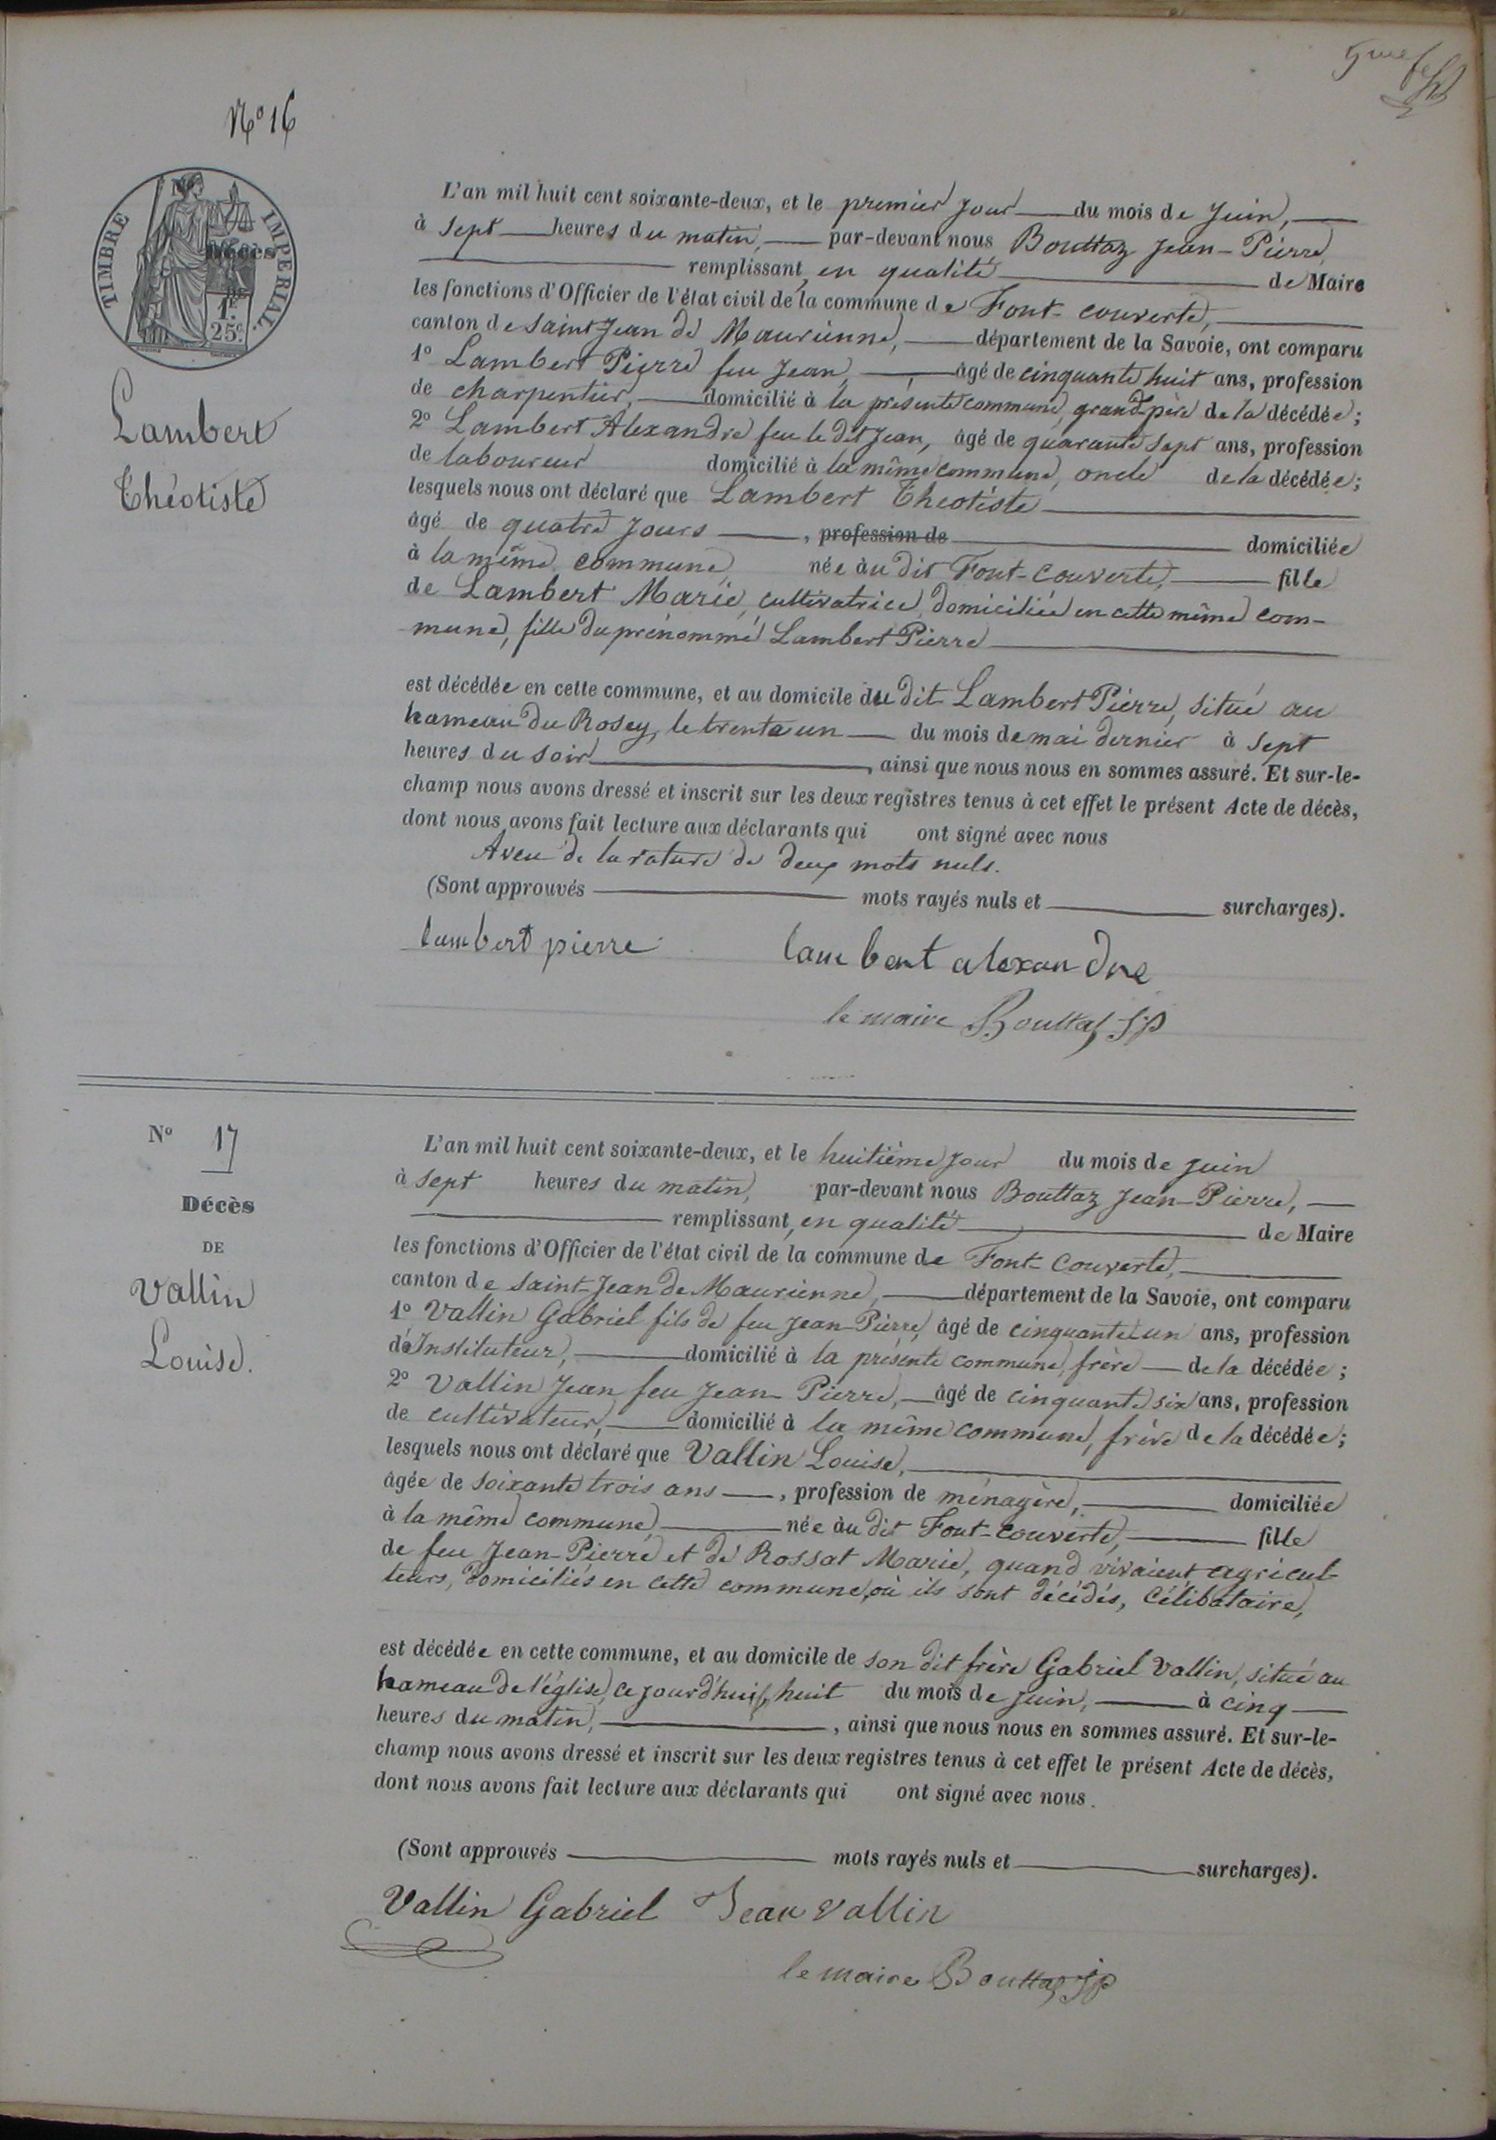 5me f
No 16
TIMBRE IMPERIAL
Décès
1f.
25c.
Lambert
Théotiste
L'an mil huit cent soixante-deux, et le premier jour du mois de Juin,
à sept heures du matin, par-devant nous Bouttaz Jean-Pierre,
remplissant, en qualité de Maire
les fonctions d'Officier de l'état civil de la commune de Font-couverte,
canton de saint-Jean de Maurienne, département de la Savoie, ont comparu
1º Lambert Pierre feu Jean, âgé de cinquante huit ans, profession
de charpentier, domicilié à la présente commune, grand-père de la décédée;
2º Lambert Alexandre feu le dit Jean, âgé de quarante sept ans, profession
de laboureur domicilié à la même commune, oncle de la décédée;
lesquels nous ont déclaré que Lambert Theotiste
âgé de quatre jours, profession de domiciliée
à la même commune, née àu dit Font-couverte, fille
de Lambert Marie, cultivatrice, domiciliée en cette même com-
mune, fille du prénommé Lambert Pierre
est décédée en cette commune, et au domicile du dit Lambert Pierre, situé au
hameau du Rosey, le trente un du mois de mai dernier à sept
heures du soir, ainsi que nous nous en sommes assuré. Et sur-le-
champ nous avons dressé et inscrit sur les deux registres tenus à cet effet le présent Acte de décès,
dont nous avons fait lecture aux déclarants qui ont signé avec nous
Aveu de la rature de deux mots nuls.
(Sont approuvés mots rayés nuls et surcharges).
lambert pierre lambert alexandre
le maire Bouttaz J P
No 17
Décès
DE
Vallin
Louise.
L'an mil huit cent soixante-deux, et le huitième jour du mois de juin
à sept heures du matin, par-devant nous Bouttaz Jean-Pierre,
remplissant, en qualité de Maire
les fonctions d'Officier de l'état civil de la commune de Font-Couverte,
canton de saint-Jean de Maurienne, département de la Savoie, ont comparu
1º Vallin Gabriel fils de feu Jean-Pierre, âgé de cinquante un ans, profession
d'Instituteur, domicilié à la présente commune, frère de la décédée;
2º Vallin Jean feu Jean-Pierre, âgé de cinquante six ans, profession
de cultivateur, domicilié à la même commune, frère de la décédée;
lesquels nous ont déclaré que Vallin Louise,
âgée de soixante trois ans, profession de ménagère, domiciliée
à la même commune, née àu dit Font-couverte, fille
de feu Jean-Pierre et de Rossat Marie, quand vivaient agricul-
teurs, domiciliés en cette commune, où ils sont décédés, Célibataire,
est décédée en cette commune, et au domicile de son dit frère Gabriel Vallin, situé au
hameau de l'église, ce jourd'hui, huit du mois de juin, à cinq
heures du matin, ainsi que nous nous en sommes assuré. Et sur-le-
champ nous avons dressé et inscrit sur les deux registres tenus à cet effet le présent Acte de décès,
dont nous avons fait lecture aux déclarants qui ont signé avec nous.
(Sont approuvés mots rayés nuls et surcharges).
Vallin Gabriel Jean vallin
le maire Bouttaz J P